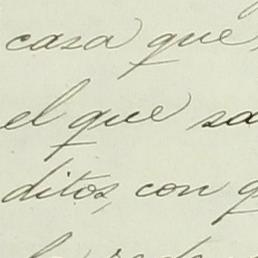 casa que
el que sa
ditos, con q